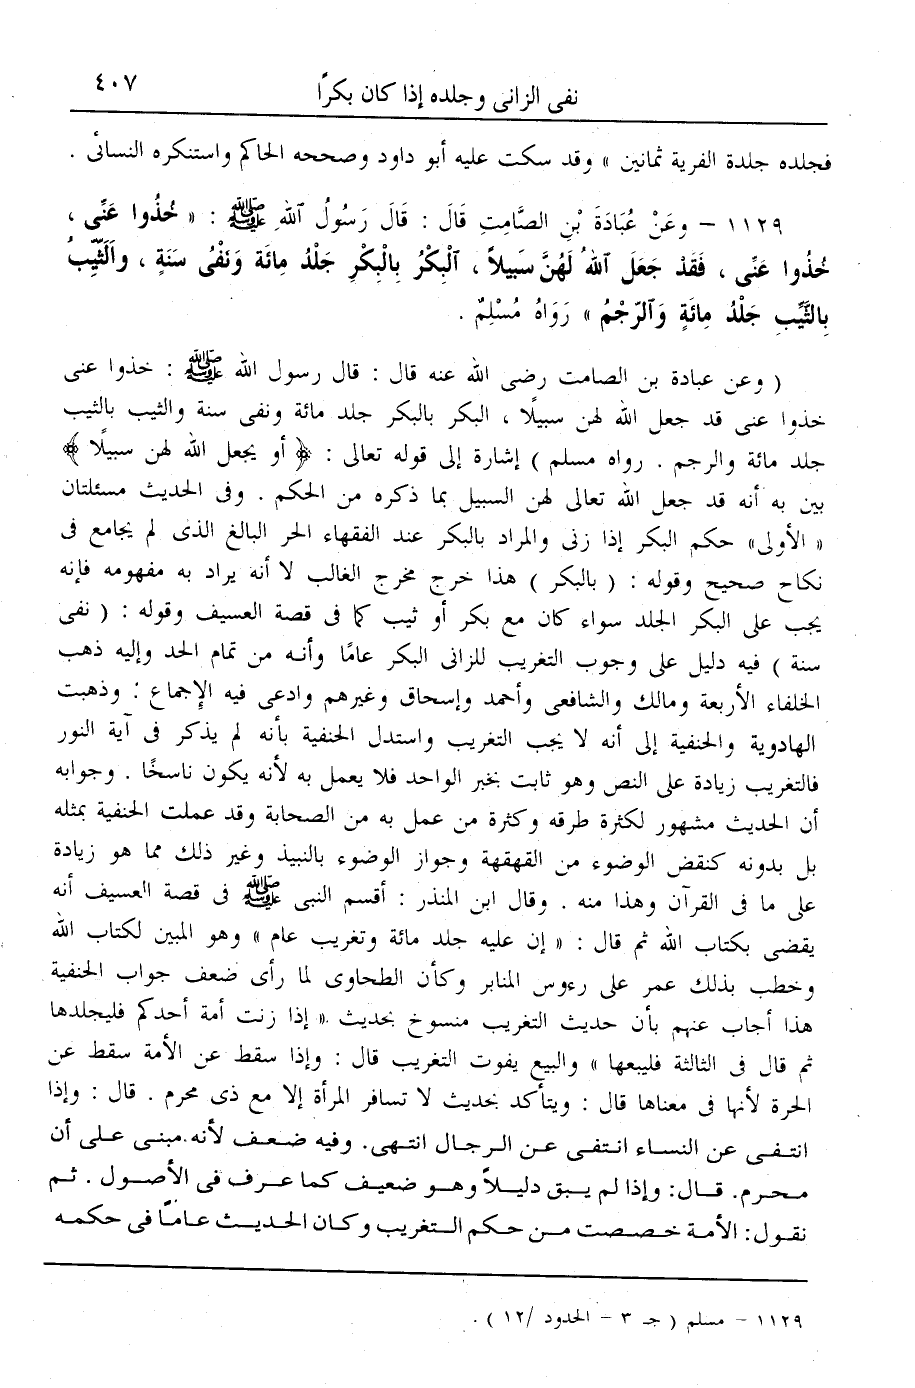 نفى الزانى وجلده إذا كان بكرًا
٤٠٧
فجلده جلدة الفرية ثمانين » وقد سكت عليه أبو داود وصححه الحاكم واستنكره النسائى .
١١٢٩ - وَعَنْ عُبَادَةَ بْنِ الصَّامِتِ قَالَ : قَالَ رَسُولُ ٱللهِ ﷺ : « خُذُوا عَنِّى ،
خُذُوا عَنِّى ، فَقَدْ جَعَلَ ٱللهُ لَهُنَّ سَبِيلاً ، ٱلْبِكْرُ بِالْبِكْرِ جَلْدُ مِائَة وَنَفْىُ سَنَةٍ ، وٱلثَّيِّبُ
بِالثَّيِّبِ جَلْدُ مِائَةٍ وَٱلرَّجْمُ » رَوَاهُ مُسْلِمٌ .
( وعن عبادة بن الصامت رضى الله عنه قال : قال رسول الله ﷺ : خذوا عنى
خذوا عنى قد جعل الله لهن سبيلًا ، البكر بالبكر جلد مائة ونفى سنة والثيب بالثيب
جلد مائة والرجم . رواه مسلم ) إشارة إلى قوله تعالى : ﴿ أو يجعل الله لهن سبيلًا ﴾
بين به أنه قد جعل الله تعالى لهن السبيل بما ذكره من الحكم . وفى الحديث مسئلتان
« الأولى » حكم البكر إذا زنى والمراد بالبكر عند الفقهاء الحر البالغ الذى لم يجامع فى
نكاح صحيح وقوله : ( بالبكر ) هذا خرج مخرج الغالب لا أنه يراد به مفهومه فإنه
يجب على البكر الجلد سواء كان مع بكر أو ثيب كما فى قصة العسيف وقوله : ( نفى
سنة ) فيه دليل على وجوب التغريب للزانى البكر عامًا وأنه من تمام الحد وإليه ذهب
الخلفاء الأربعة ومالك والشافعى وأحمد وإسحاق وغيرهم وادعى فيه الإجماع : وذهبت
الهادوية والحنفية إلى أنه لا يجب التغريب واستدل الحنفية بأنه لم يذكر فى آية النور
فالتغريب زيادة على النص وهو ثابت بخبر الواحد فلا يعمل به لأنه يكون ناسخًا . وجوابه
أن الحديث مشهور لكثرة طرقه وكثرة من عمل به من الصحابة وقد عملت الحنفية بمثله
بل بدونه كنقض الوضوء من القهقهة وجواز الوضوء بالنبيذ وغير ذلك مما هو زيادة
على ما فى القرآن وهذا منه . وقال ابن المنذر : أقسم النبى ﷺ فى قصة العسيف أنه
يقضى بكتاب الله ثم قال : « إن عليه جلد مائة وتغريب عام » وهو المبين لكتاب الله
وخطب بذلك عمر على رءوس المنابر وكأن الطحاوى لما رأى ضعف جواب الحنفية
هذا أجاب عنهم بأن حديث التغريب منسوخ بحديث « إذا زنت أمة أحدكم فليجلدها
ثم قال فى الثالثة فليبعها » والبيع يفوت التغريب قال : وإذا سقط عن الأمة سقط عن
الحرة لأنها فى معناها قال : ويتأكد بحديث لا تسافر المرأة إلا مع ذى محرم . قال : وإذا
انتفى عن النساء انتفى عن الرجال انتهى. وفيه ضعف لأنه مبنى على أن
محرم. قال: وإذا لم يبق دليلاً وهو ضعيف كما عرف فى الأصول . ثم
نقول: الأمة خصصت من حكم التغريب وكان الحديث عامًا فى حكمه
١١٢٩ - مسلم ( جـ ٣ - الحدود /١٢ ) .